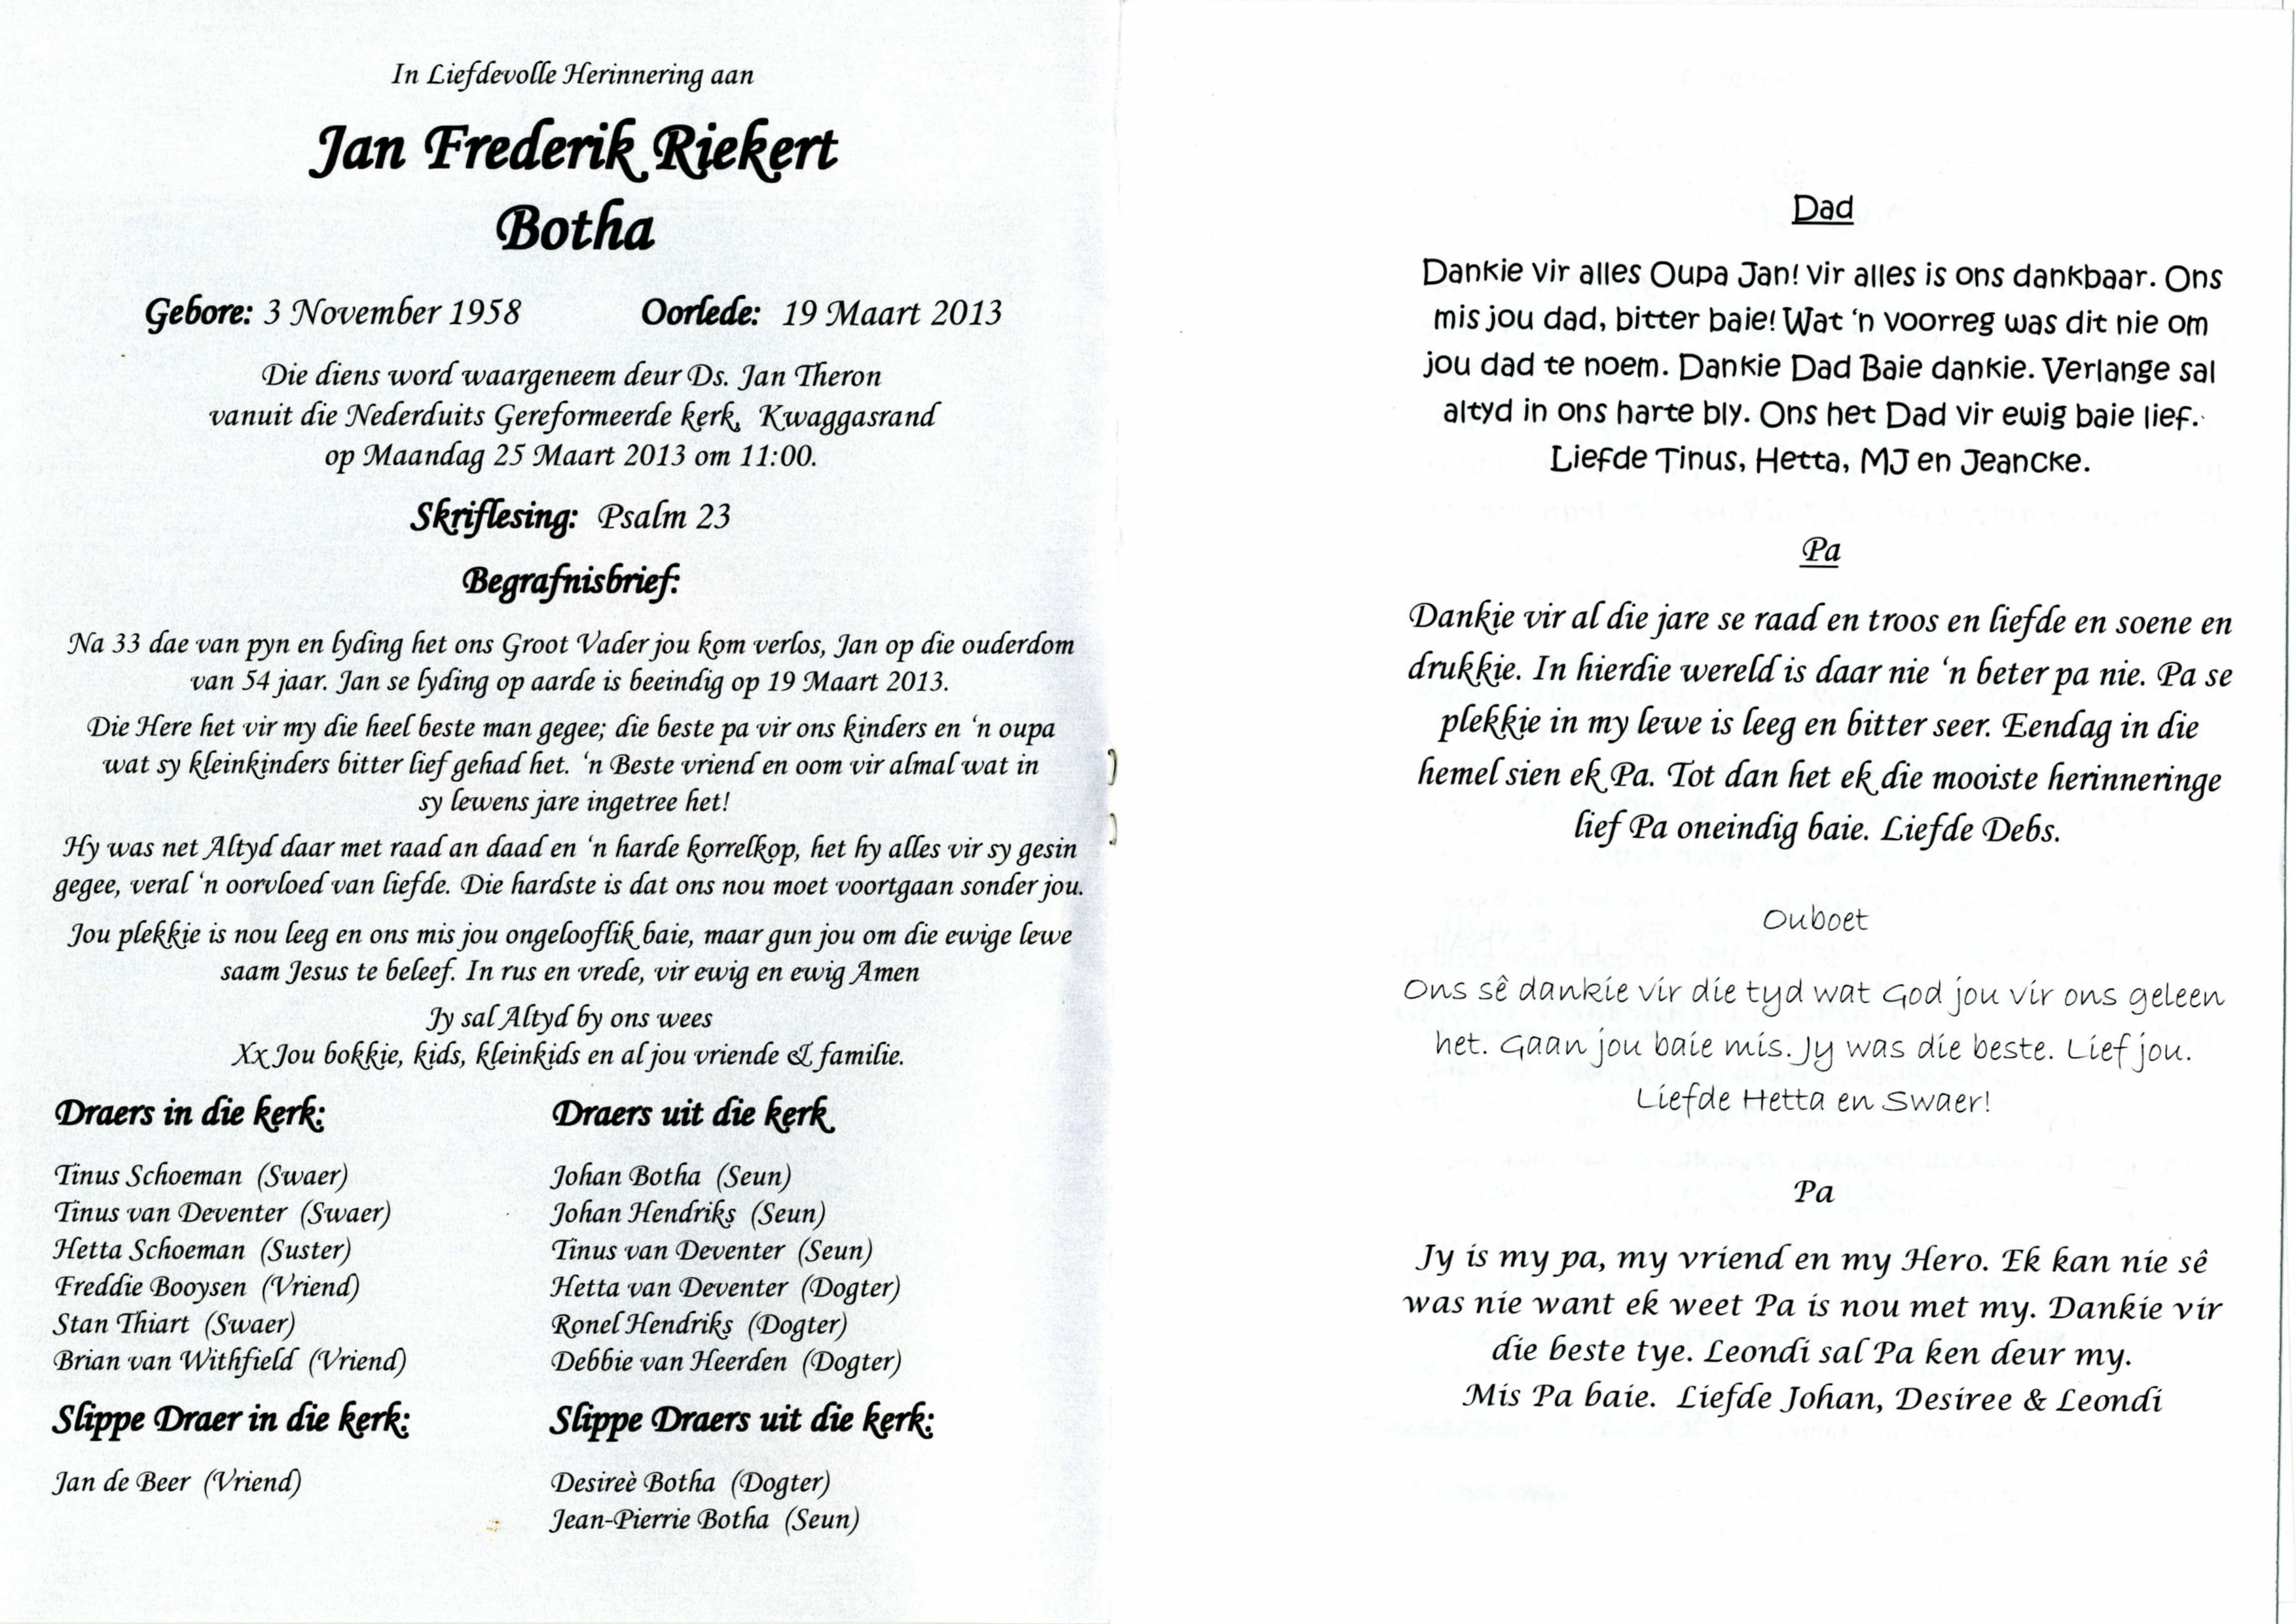 In Liefdevolle Herinnering aan
Jan Frederik Riekert
Botha
Gebore: 3 November 1958 Oorlede: 19 Maart 2013
Die diens word waargeneem deur Ds. Jan Theron
vanuit die Nederduits Gereformeerde kerk, Kwaggasrand
op Maandag 25 Maart 2013 om 11:00.
Skriflesing: Psalm 23
Begrafnisbrief:
Na 33 dae van pyn en lyding het ons Groot Vader jou kom verlos, Jan op die ouderdom
van 54 jaar. Jan se lyding op aarde is beeindig op 19 Maart 2013.
Die Here het vir my die heel beste man gegee; die beste pa vir ons kinders en ‘n oupa
wat sy kleinkinders bitter lief gehad het. ‘n Beste vriend en oom vir almal wat in
sy lewens jare ingetree het!
Hy was net Altyd daar met raad an daad en ‘n harde korrelkop, het hy alles vir sy gesin
gegee, veral ‘n oorvloed van liefde. Die hardste is dat ons nou moet voortgaan sonder jou.
Jou plekkie is nou leeg en ons mis jou ongelooflik baie, maar gun jou om die ewige lewe
saam Jesus te beleef. In rus en vrede, vir ewig en ewig Amen
Jy sal Altyd by ons wees
Xx Jou bokkie, kids, kleinkids en al jou vriende & familie.
Draers in die kerk:
Tinus Schoeman (Swaer)
Tinus van Deventer (Swaer)
Hetta Schoeman (Suster)
Freddie Booysen (Vriend)
Stan Thiart (Swaer)
Brian van Withfield (Vriend)
Slippe Draer in die kerk:
Jan de Beer (Vriend)
Draers uit die kerk
Johan Botha (Seun)
Johan Hendriks (Seun)
Tinus van Deventer (Seun)
Hetta van Deventer (Dogter)
Ronel Hendriks (Dogter)
Debbie van Heerden (Dogter)
Slippe Draers uit die kerk:
Desireè Botha (Dogter)
Jean-Pierrie Botha (Seun)
Dad
Dankie vir alles Oupa Jan! Vir alles is ons dankbaar. Ons
mis jou dad, bitter baie! Wat ‘n voorreg was dit nie om
jou dad te noem. Dankie Dad Baie dankie. Verlange sal
altyd in ons harte bly. Ons het Dad vir ewig baie lief.
Liefde Tinus, Hetta, MJ en Jeancke.
Pa
Dankie vir al die jare se raad en troos en liefde en soene en
drukkie. In hierdie wereld is daar nie ‘n beter pa nie. Pa se
plekkie in my lewe is leeg en bitter seer. Eendag in die
hemel sien ek Pa. Tot dan het ek die mooiste herinneringe
lief Pa oneindig baie. Liefde Debs.
Ouboet
Ons sê dankie vir die tyd wat God jou vir ons geleen
het. Gaan jou baie mis. Jy was die beste. Lief jou.
Liefde Hetta en Swaer!
Pa
Jy is my pa, my vriend en my Hero. Ek kan nie sê
was nie want ek weet Pa is nou met my. Dankie vir
die beste tye. Leondi sal Pa ken deur my.
Mis Pa baie. Liefde Johan, Desiree & Leondi